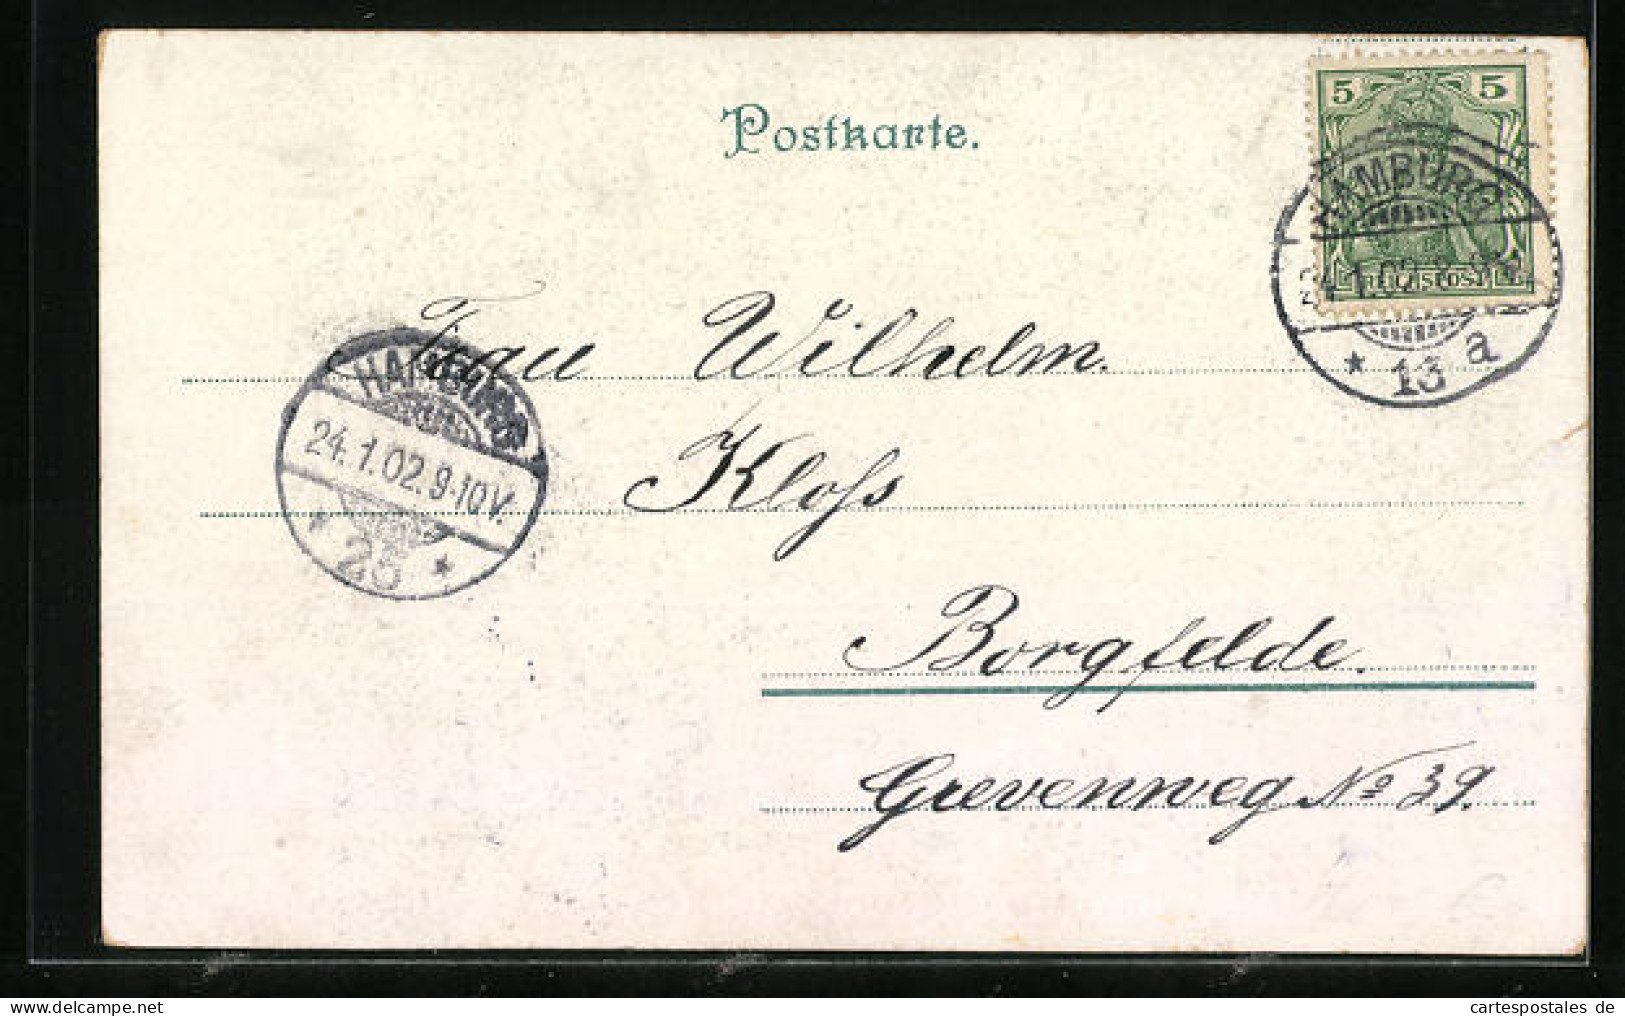 Postkarte.
5 5
REICHSPOST
HAMBURG
24.1.02
* 13 a
HAMBURG
24.1.02.9-10V.
* 25 *
Frau Wilhelm.
Kloſs
Borgfelde.
Grevenweg No 39.
cartespostales de